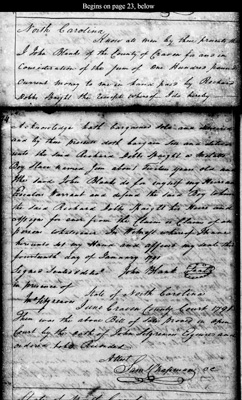 Begins on page 23, below
North Carolina
Know all men by these presents that
I John Blank of the County of Craven for and in
Consideration of the sum of One Hundred pounds
Current money to me in hand paid by Richard
Dobbs Spaight the receipt whereof I do hereby
Acknowledge hath bargained sold and delivered
and by these presents doth bargain sell and deliver
unto the said Richard Dobbs Spaight a
Boy Slave named Jim about twelve years old and
the said John Blank do for myself my Heirs
warrant and defend the said Boy unto
the said Richard Dobbs Spaight his Heirs and
assigns for ever from the Claim or Claims of any
person whatsoever In Witness whereof I have
hereunto set my Hand and affixed my seal this
fourteenth day of January 1791
John Blank Seal
in presence of
State of North Carolina
Craven County Court
Then was the above Bill of Sale proved in open
Court by the oath of John Esquire and
ordered to be
Attest
Sam Chapman CC